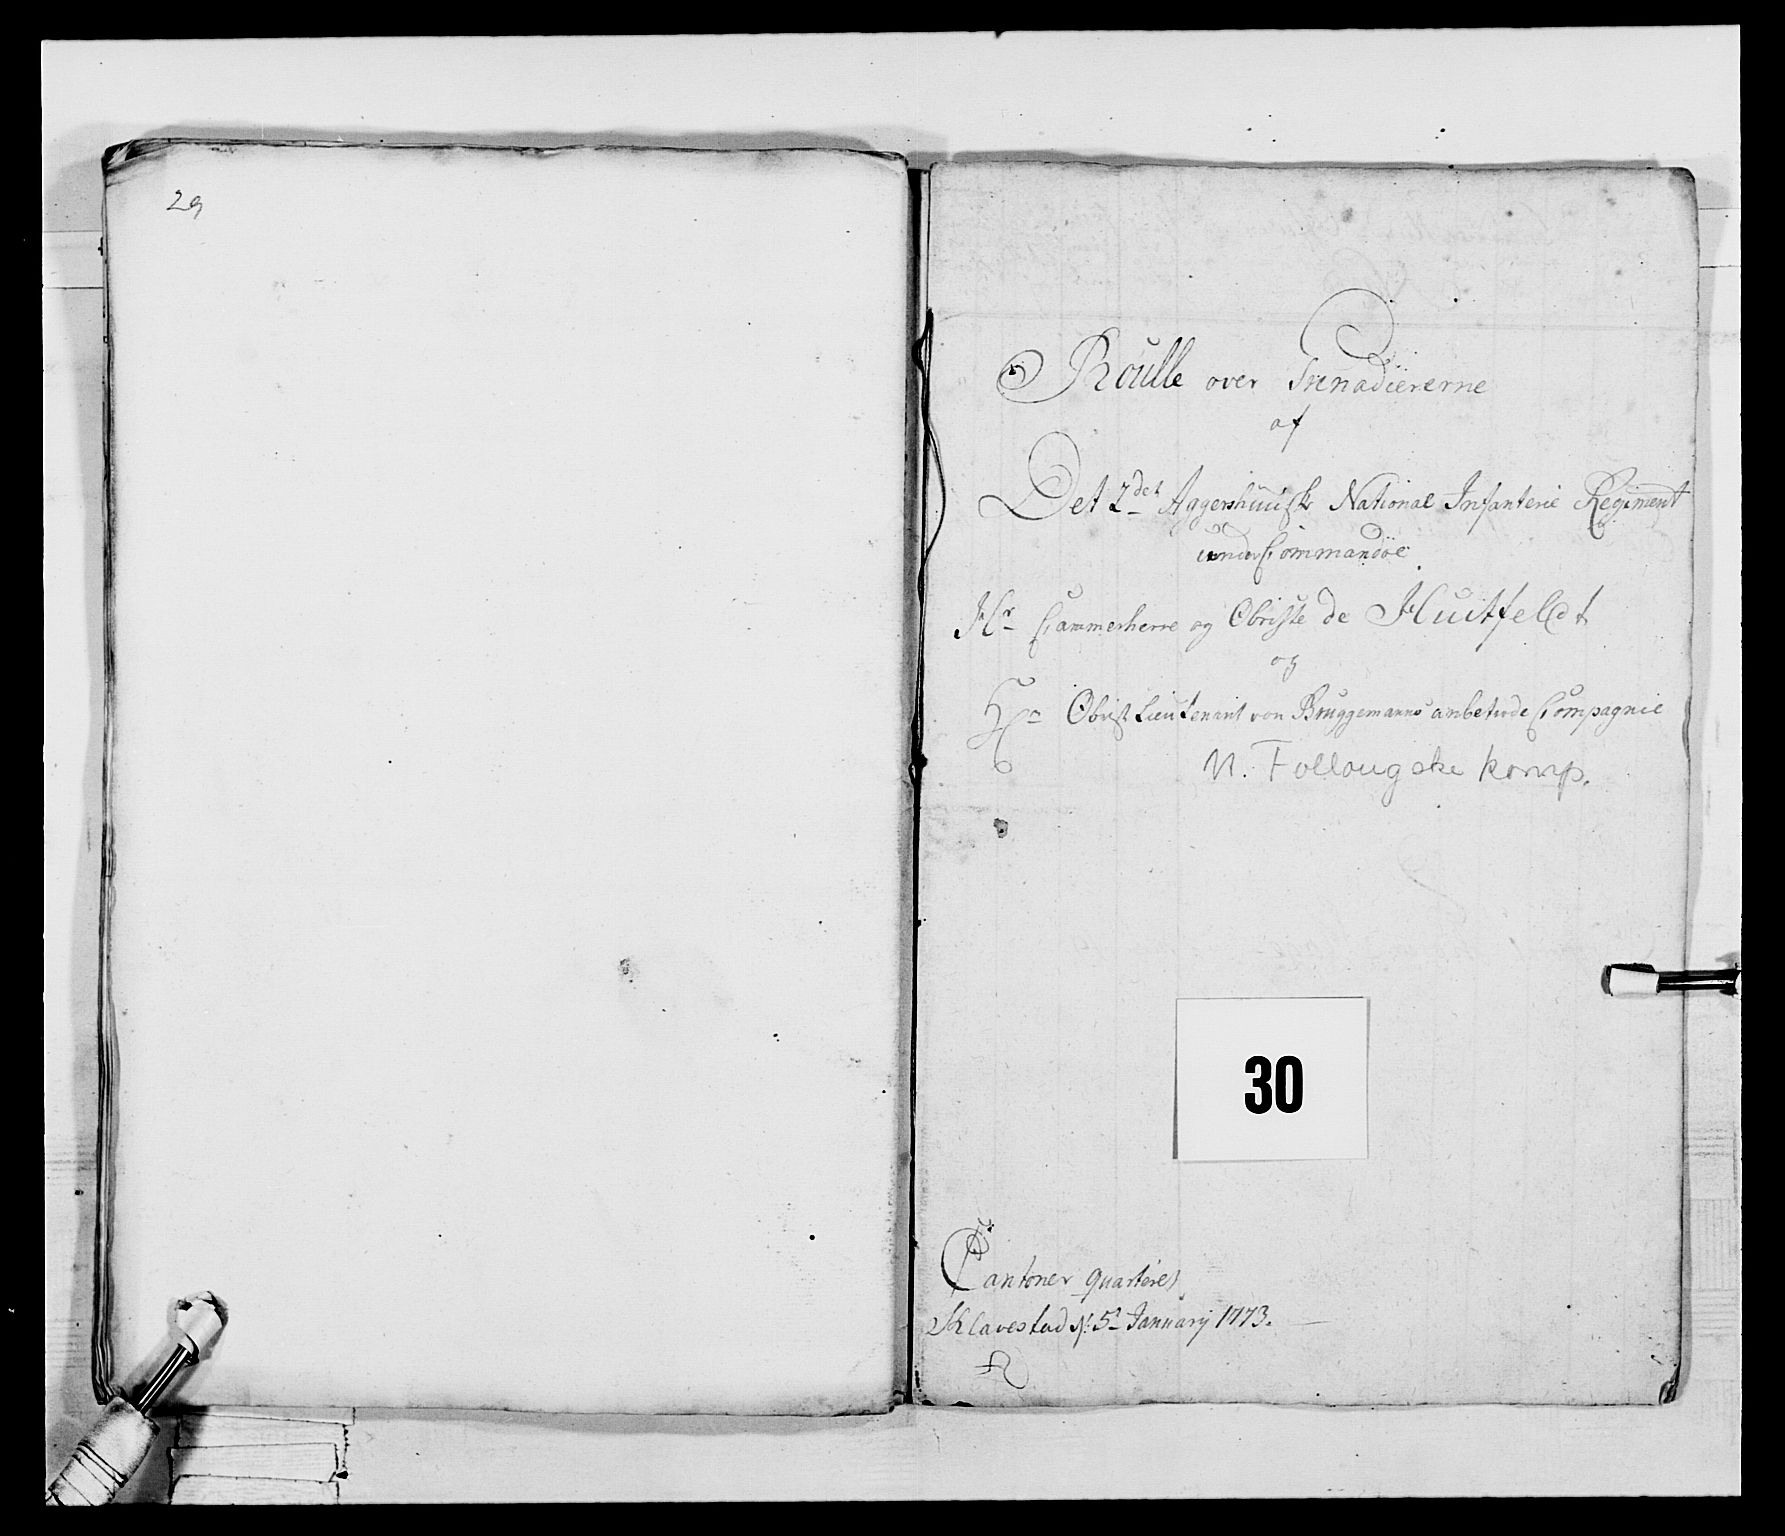 29
Roulle over Grenadiererne
af
Det 2det Aggershuusisk National Infanterie Regiment
under Commandoe
Hr Cammerherre og Obriste de Huitfeldt
og
Hr Obrist Lieutenant von Bruggemanns anbetrode Compagnie
N. Follougske komp.
30
Cantoner quarteret
Klavestad d: 5t January 1773.